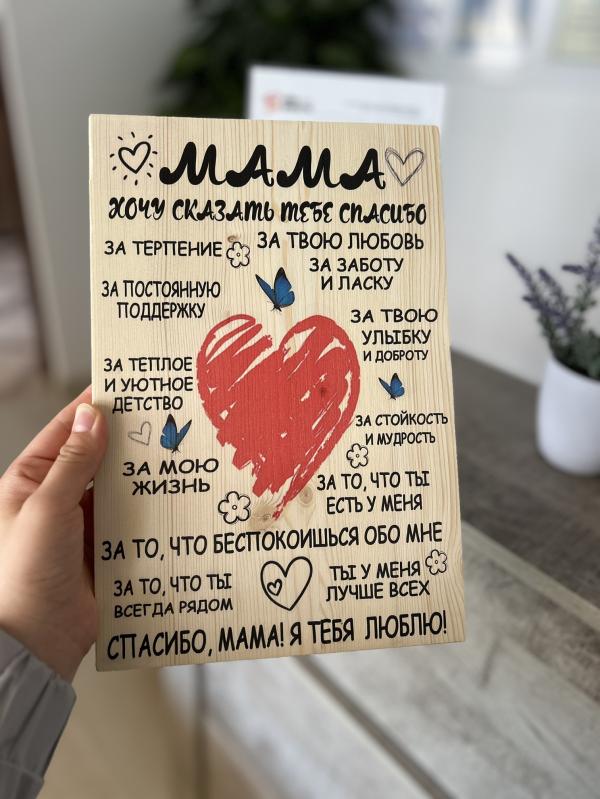 МАМА
ХОЧУ СКАЗАТЬ ТЕБЕ СПАСИБО
ЗА ТЕРПЕНИЕ
ЗА ТВОЮ ЛЮБОВЬ
ЗА ЗАБОТУ
И ЛАСКУ
ЗА ПОСТОЯННУЮ
ПОДДЕРЖКУ
ЗА ТВОЮ
УЛЫБКУ
И ДОБРОТУ
ЗА ТЕПЛОЕ
И УЮТНОЕ
ДЕТСТВО
ЗА СТОЙКОСТЬ
И МУДРОСТЬ
ЗА МОЮ
ЖИЗНЬ
ЗА ТО, ЧТО ТЫ
ЕСТЬ У МЕНЯ
ЗА ТО, ЧТО БЕСПОКОИШЬСЯ ОБО МНЕ
ЗА ТО, ЧТО ТЫ
ВСЕГДА РЯДОМ
ТЫ У МЕНЯ
ЛУЧШЕ ВСЕХ
СПАСИБО, МАМА! Я ТЕБЯ ЛЮБЛЮ!